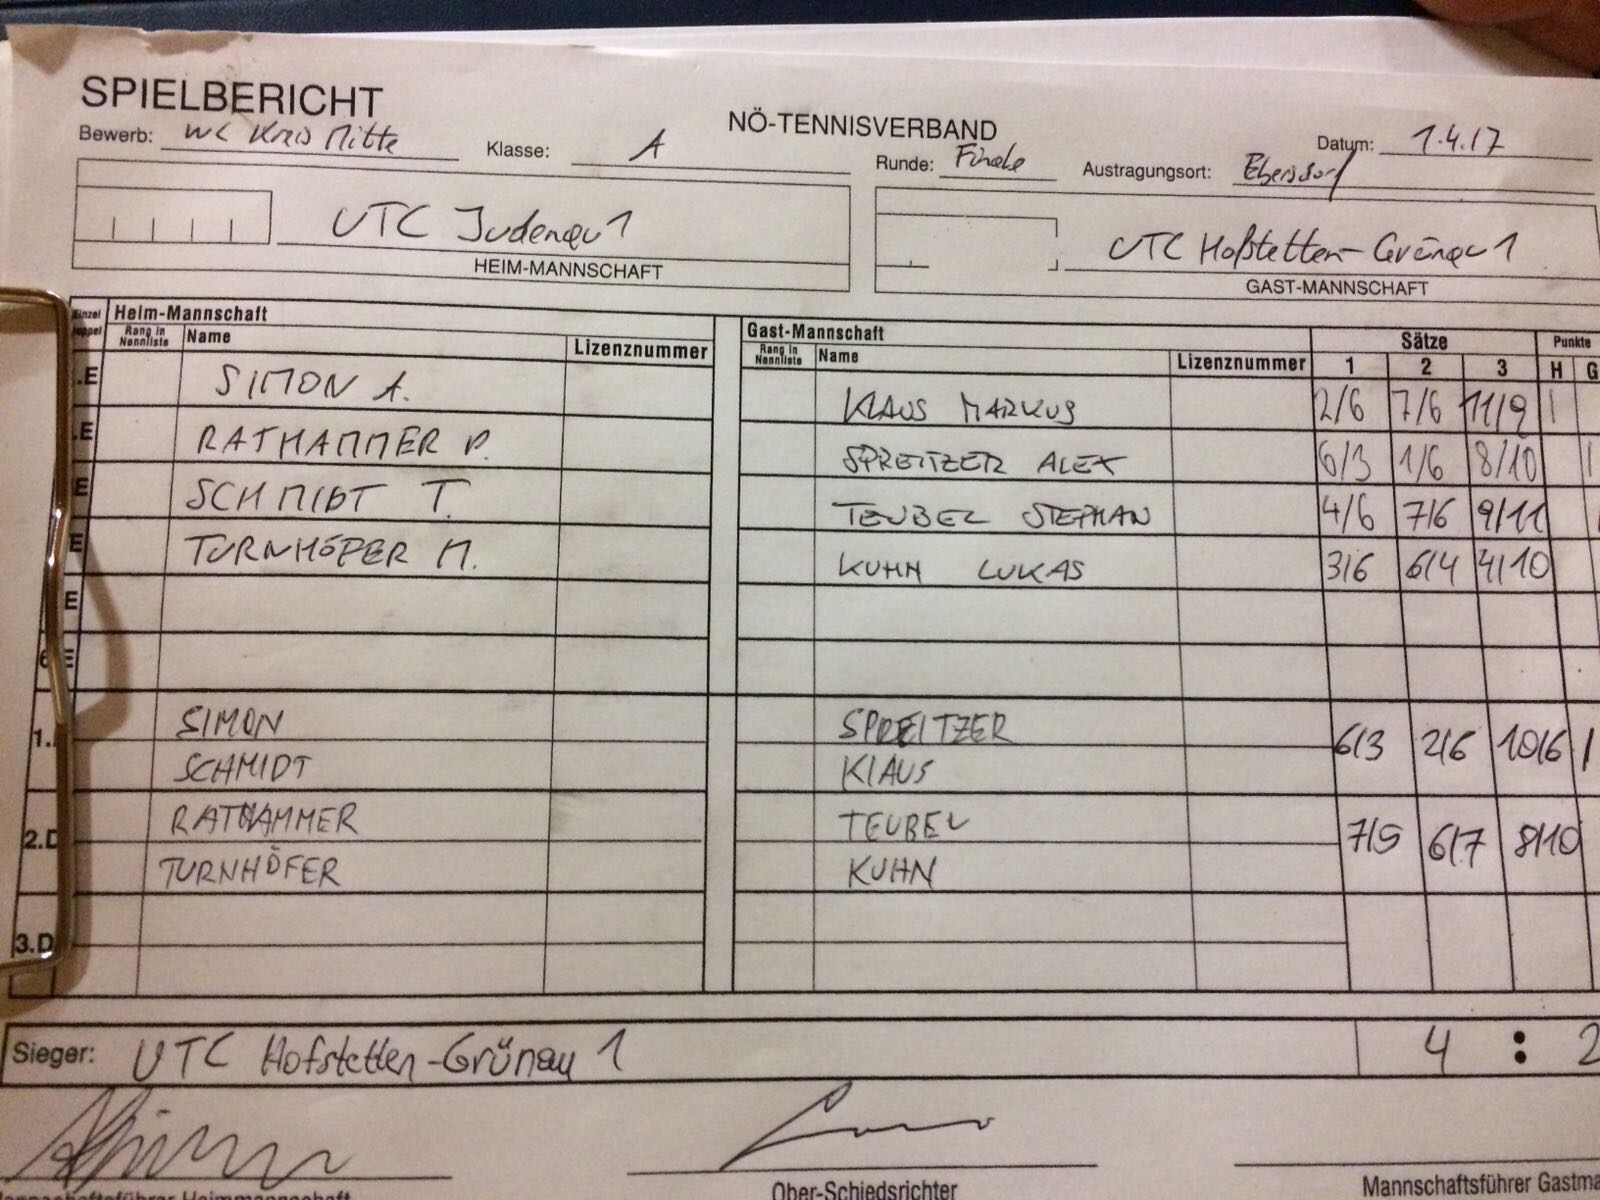 SPIELBERICHT
NÖ-TENNISVERBAND
Bewerb: WC Kreis Mitte Klasse: A Runde: Finale Austragungsort: Ebersdorf Datum: 1.4.17
UTC Judenau 1
HEIM-MANNSCHAFT
UTC Hofstetten-Grünau 1
GAST-MANNSCHAFT
Einzel Heim-Mannschaft Gast-Mannschaft Sätze Punkte
Rang in Nennliste Name Lizenznummer Rang in Nennliste Name Lizenznummer 1 2 3 H G
.E SIMON A. KLAUS MARKUS 2/6 7/6 11/9 1
.E RATHAMMER P. SPREITZER ALEX 6/3 1/6 8/10 1
E SCHMIDT T. TEUBEL STEPHAN 4/6 7/6 9/11 1
E TURNHÖFER M. KUHN LUKAS 3/6 6/4 4/10
E
6 E
1. SIMON SPREITZER 6/3 2/6 10/6 1
SCHMIDT KLAUS
2.D RATHAMMER TEUBEL 7/5 6/7 8/10
TURNHÖFER KUHN
3.D
Sieger: UTC Hofstetten-Grünau 1 4 : 2
Mannschaftsführer Heimmannschaft Ober-Schiedsrichter Mannschaftsführer Gastma